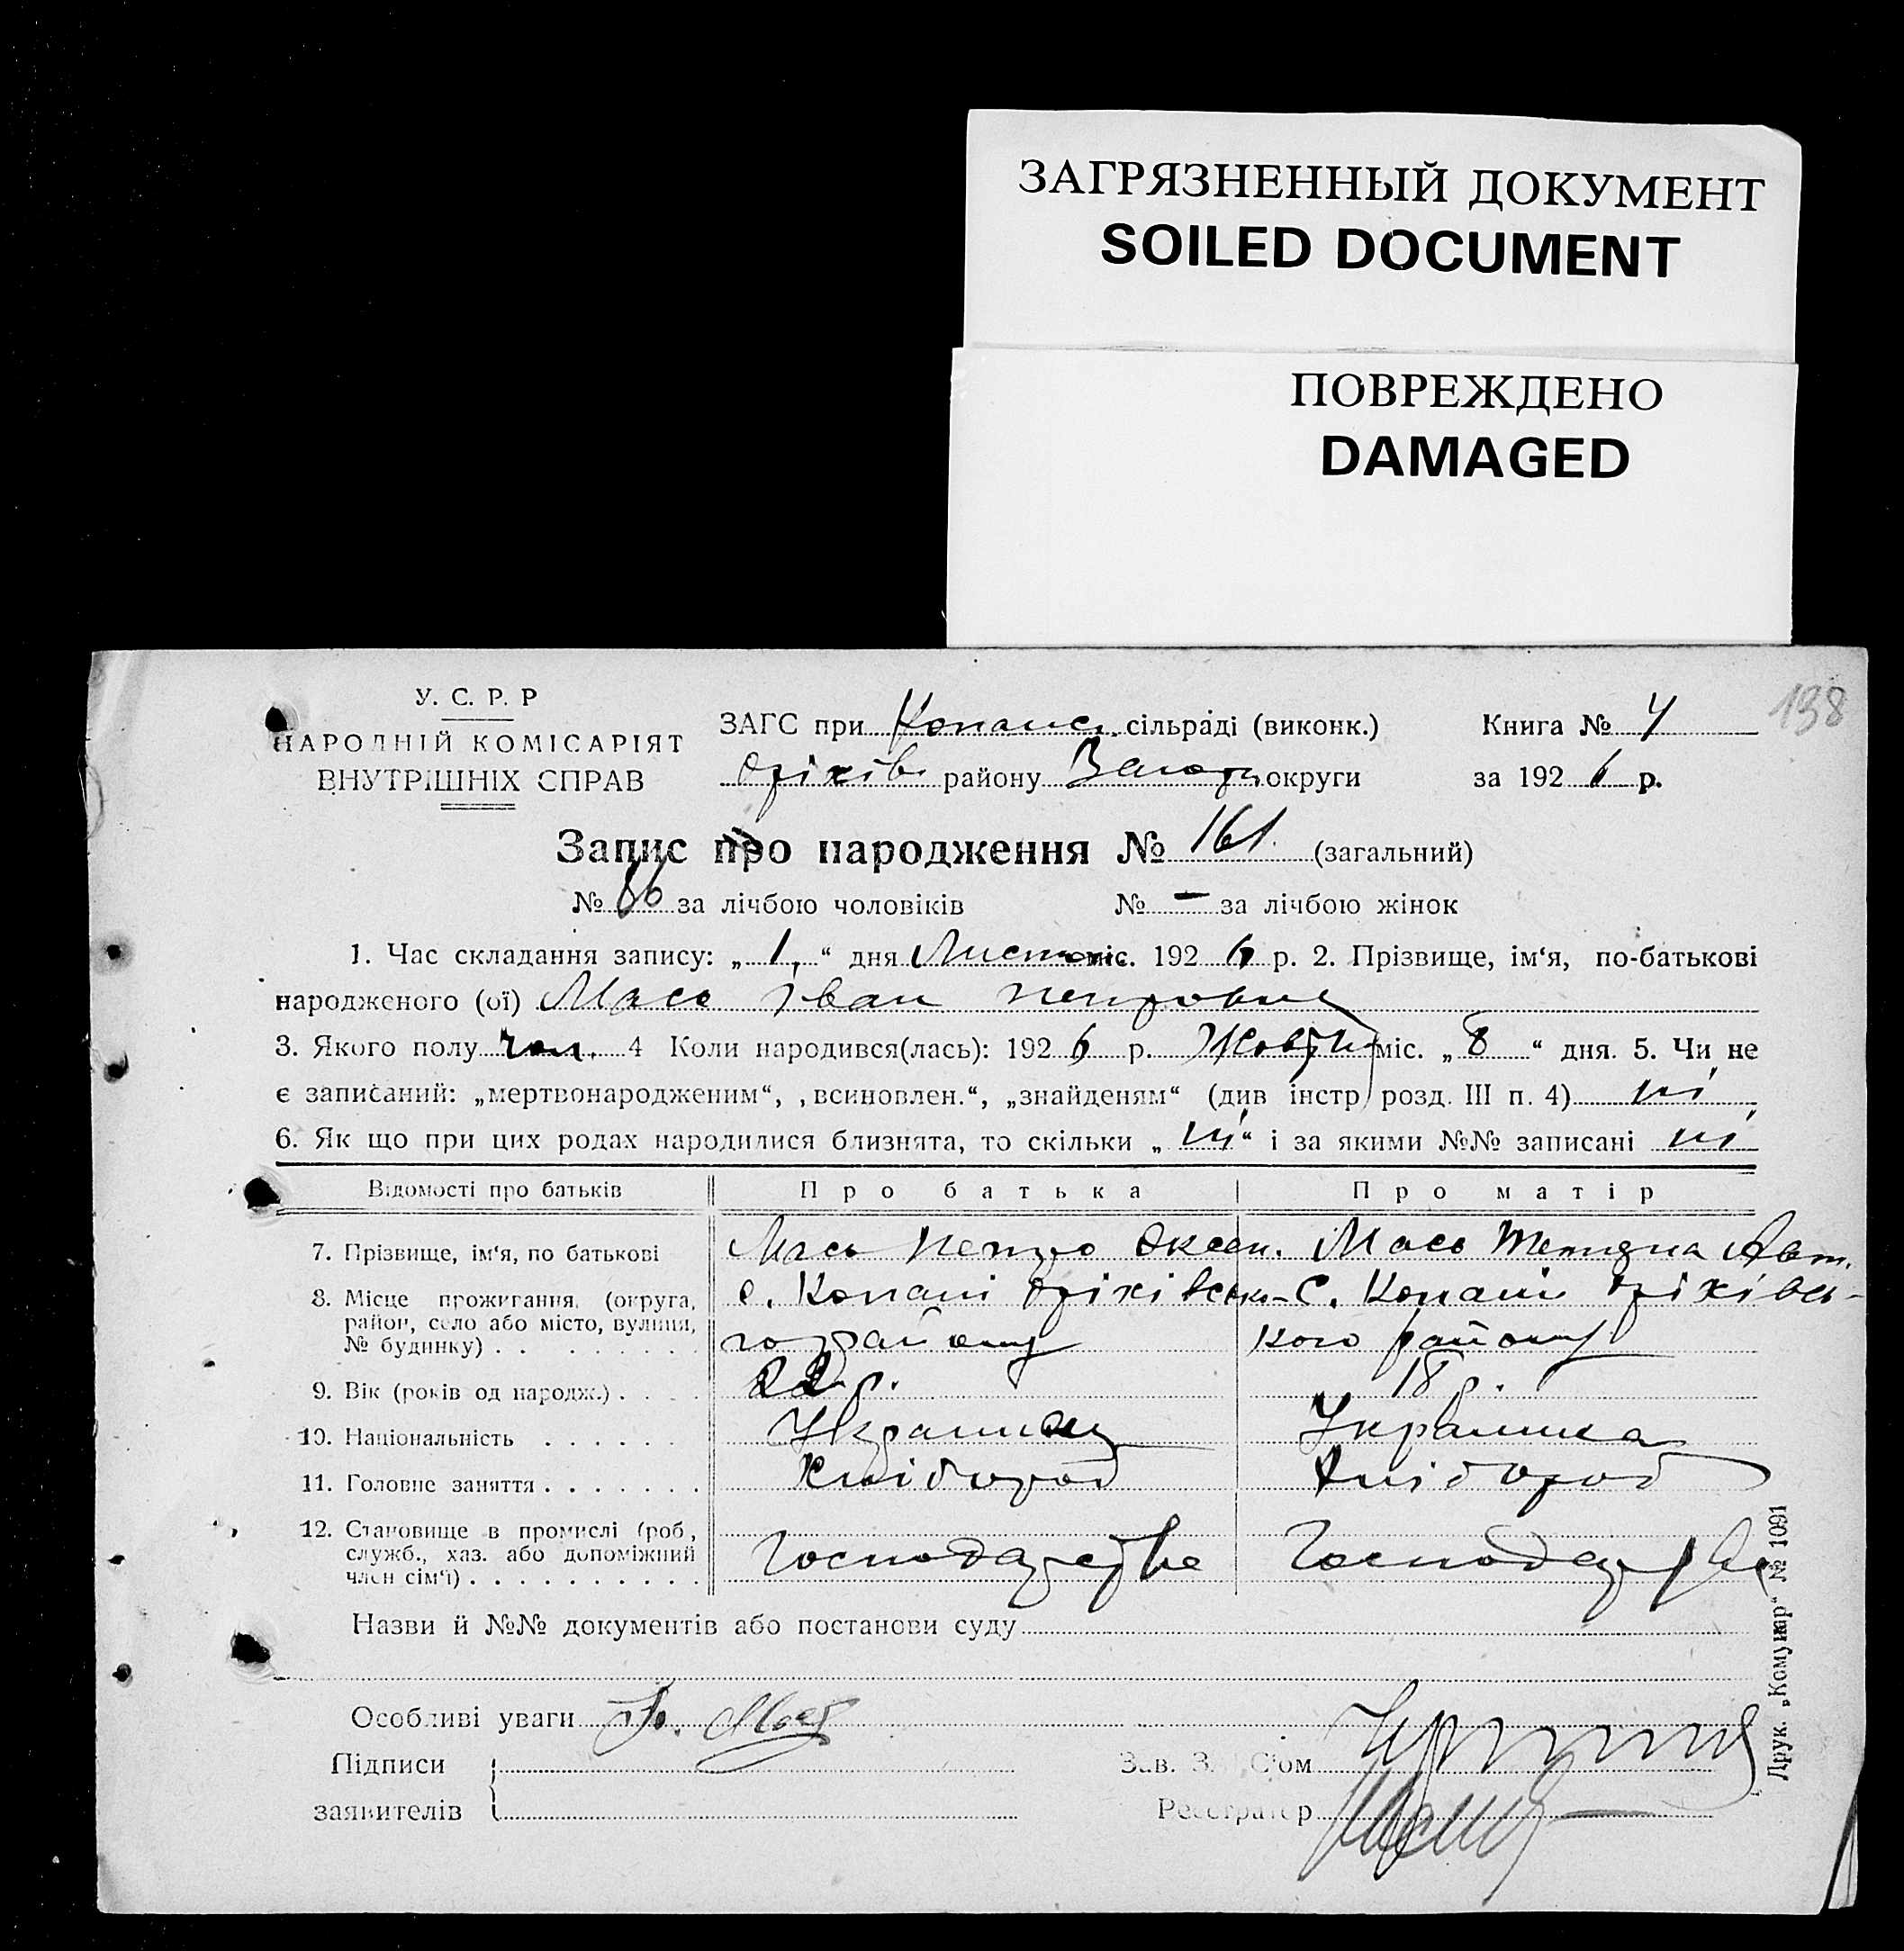 ЗАГРЯЗНЕННЫЙ ДОКУМЕНТ
SOILED DOCUMENT
ПОВРЕЖДЕНО
DAMAGED
138
У. С. Р. Р
НАРОДНІЙ КОМІСАРІЯТ
ВНУТРІШНІХ СПРАВ
ЗАГС при Копанс. сільраді (виконк.) Книга №
Оріхів району Запор. округи за 1926 р.
Запис про народження № 161. (загальний)
№ 86 за лічбою чоловіків № — за лічбою жінок
1. Час складання запису: „1.“ дня Листоп. міс. 1926 р. 2. Прізвище, ім‘я, по-батькові
народженого (ої) Мась Іван Петрович
3. Якого полу чол. 4 Коли народився(лась): 1926 р. Жовтн міс. „8“ дня. 5. Чи не
є записаний: „мертвонародженим“, „всиновлен.“, „знайденям“ (див інстр розд. III п. 4) ні
6. Як що при цих родах народилися близнята, то скільки „ні“ і за якими №№ записані ні
Відомості про батьків Про батька Про матір
7. Прізвище, ім‘я, по батькові Мась Петро Оксен. Мась Тетяна Авт.
8. Місце прожигання, (округа, с. Копані Оріхівсько- С. Копани Оріхівсь-
район, село або місто, вулиця,
№ будинку) . . го району кого району
9. Вік (років од народж.) . 22 р. 18 р.
10. Національність Украинец Украинка
11. Головне заняття . Хлібороб Хлібороб
12. Становище в промислі (роб,
служб., хаз. або допоміжний Господарство Господарство
член сім‘ї) .
Назви й №№ документів або постанови суду
Особливі уваги
Підписи Зав. ЗАГС‘ом
заявителів Реєстратор
Друк. „Комунар“ № 1091